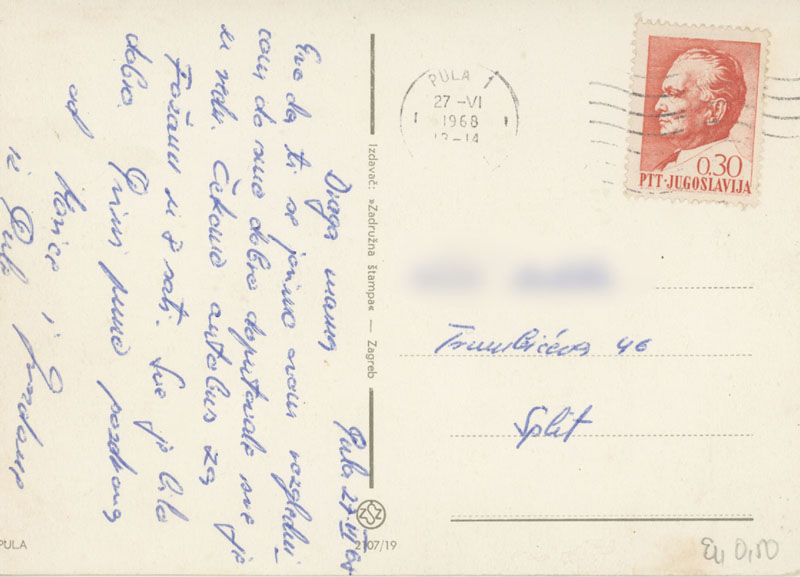 Pula 27-VI 68
Draga mama
Evo da ti se javimo ovom razgledni-
com da smo dobro doputovale sve je
u redu. Čekamo autobus za
Fažanu u 8 sati. Sve je bilo
dobro. Primi puno pozdrava
od
iz Pule
PULA
Izdavač: »Zadružna štampa« — Zagreb
2107/19
PULA 1
27 -VI
1968
13-14
0.30
PTT·JUGOSLAVIJA
Trumbićeva 46
Split